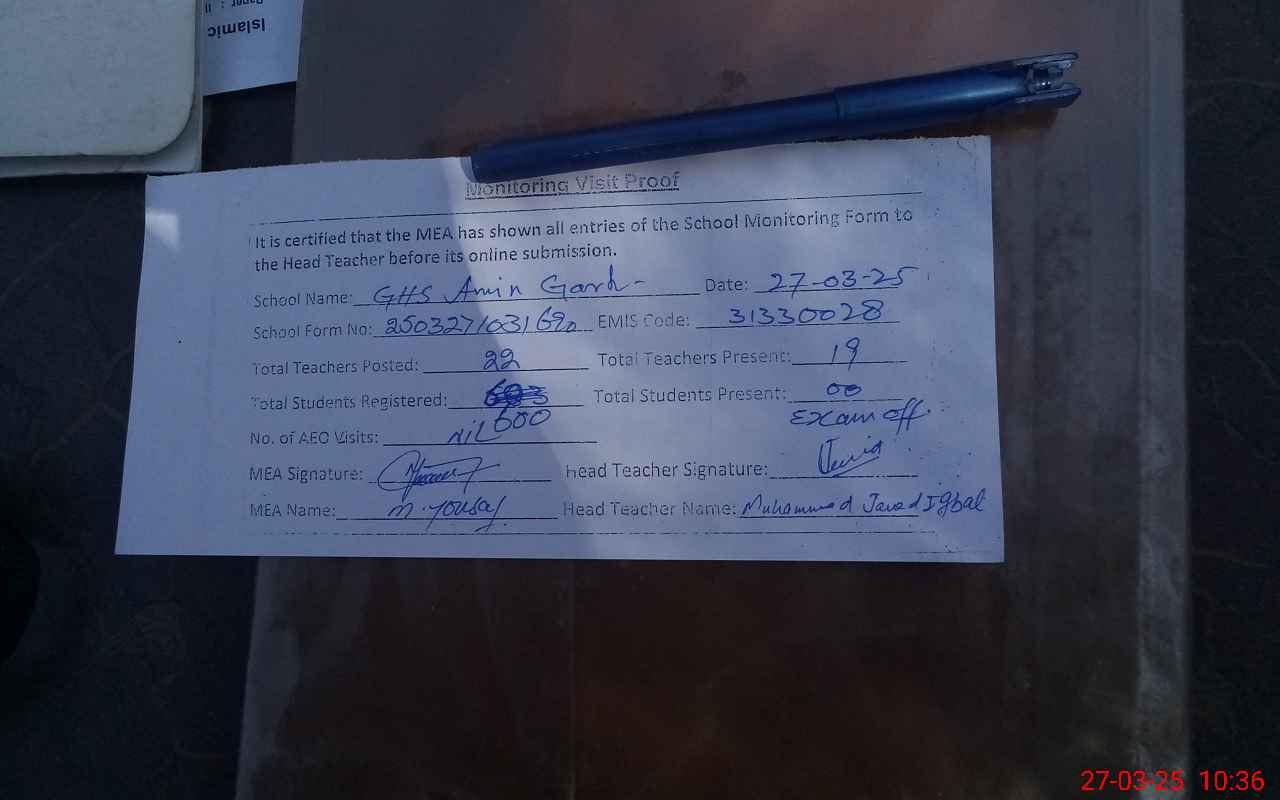 Islamic
Paper : II
Monitoring Visit Proof
It is certified that the MEA has shown all entries of the School Monitoring Form to
the Head Teacher before its online submission.
School Name: GHS Amin Garh - Date: 27-03-25
School Form No: EMIS Code: 31330028
Total Teachers Posted: 22 Total Teachers Present: 19
Total Students Registered: 600 Total Students Present: 00
Exam off.
No. of AEO Visits: Nil
MEA Signature: Head Teacher Signature:
MEA Name: M. Yousaf Head Teacher Name: Muhammad Javed Iqbal
27-03-25 10:36